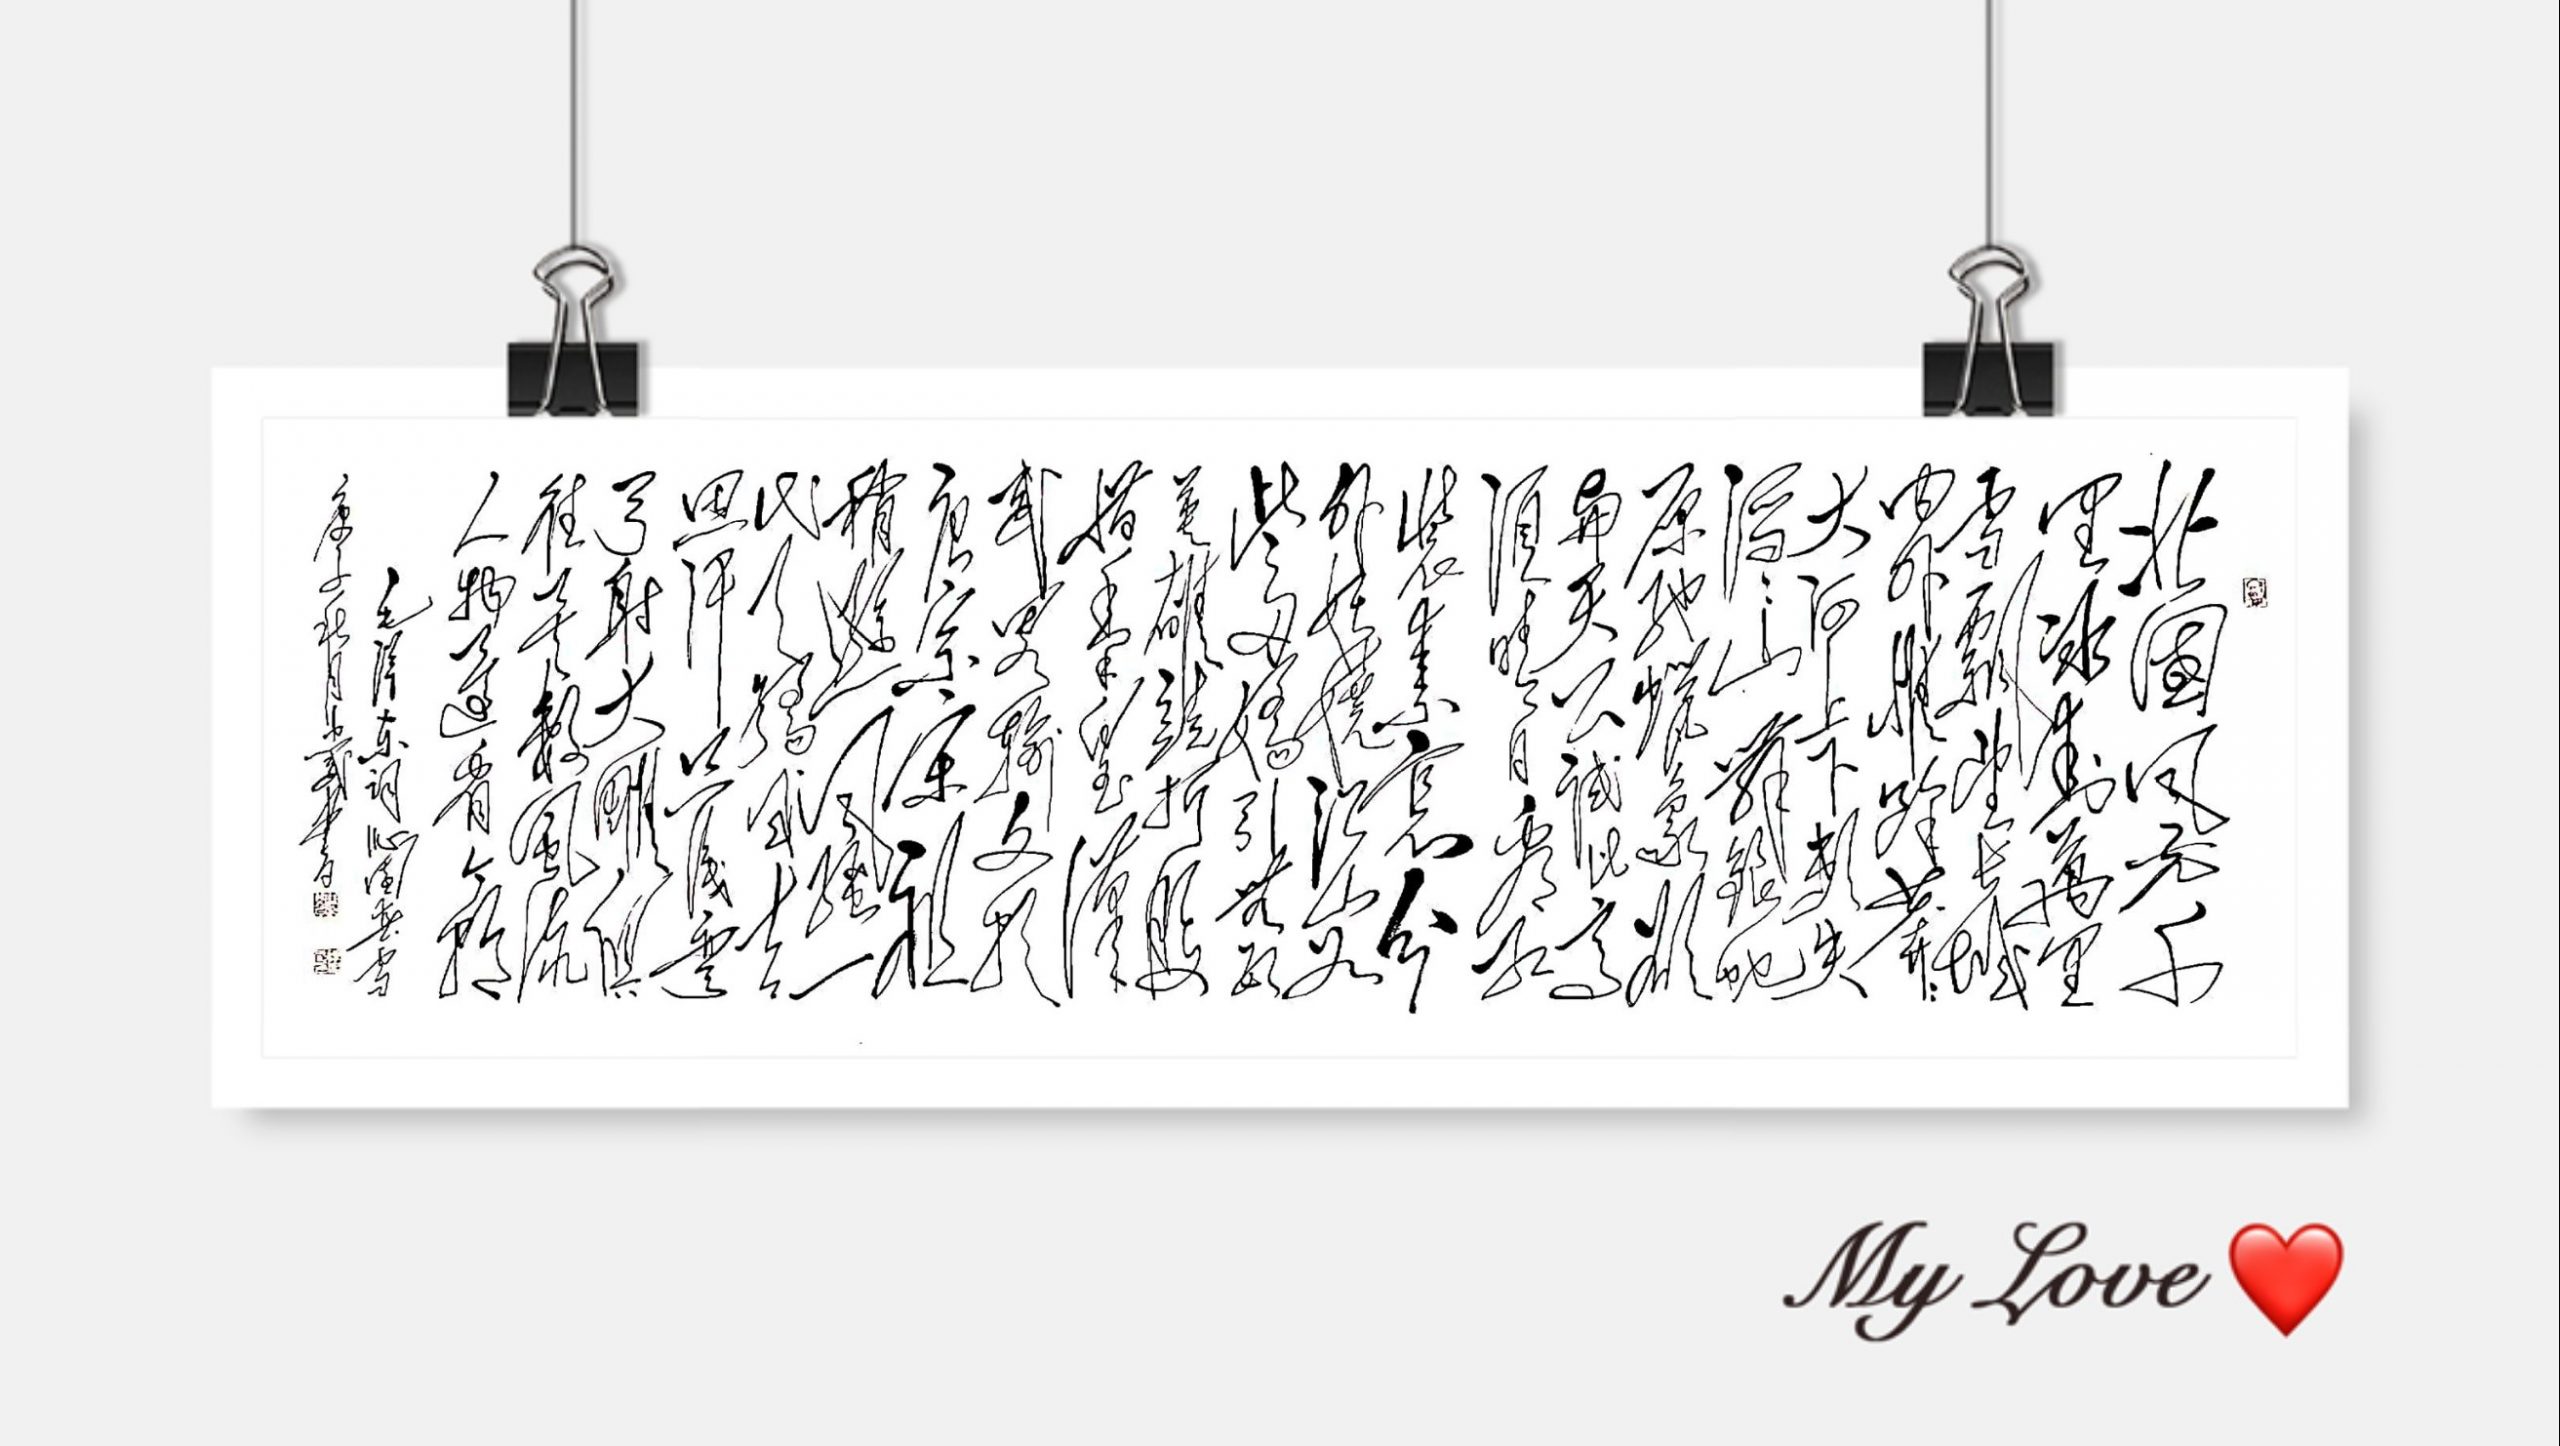 北國风光千
里冰封萬里
雪飄望長城
内外惟餘莽〻
大河上下顿失
滔〻山舞銀蛇
原驰蜡象欲
與天公试比高
须晴日看红
装素裹分
外妖娆江山如
此多娇引無数
英雄競折腰
惜秦皇漢
武略輸文采
唐宗宋祖
稍逊风骚一
代天骄成吉
思汗只识彎
弓射大雕俱
往矣数風流
人物還看今朝
毛泽东词沁園春雪
庚子秋月書
My Love ❤️